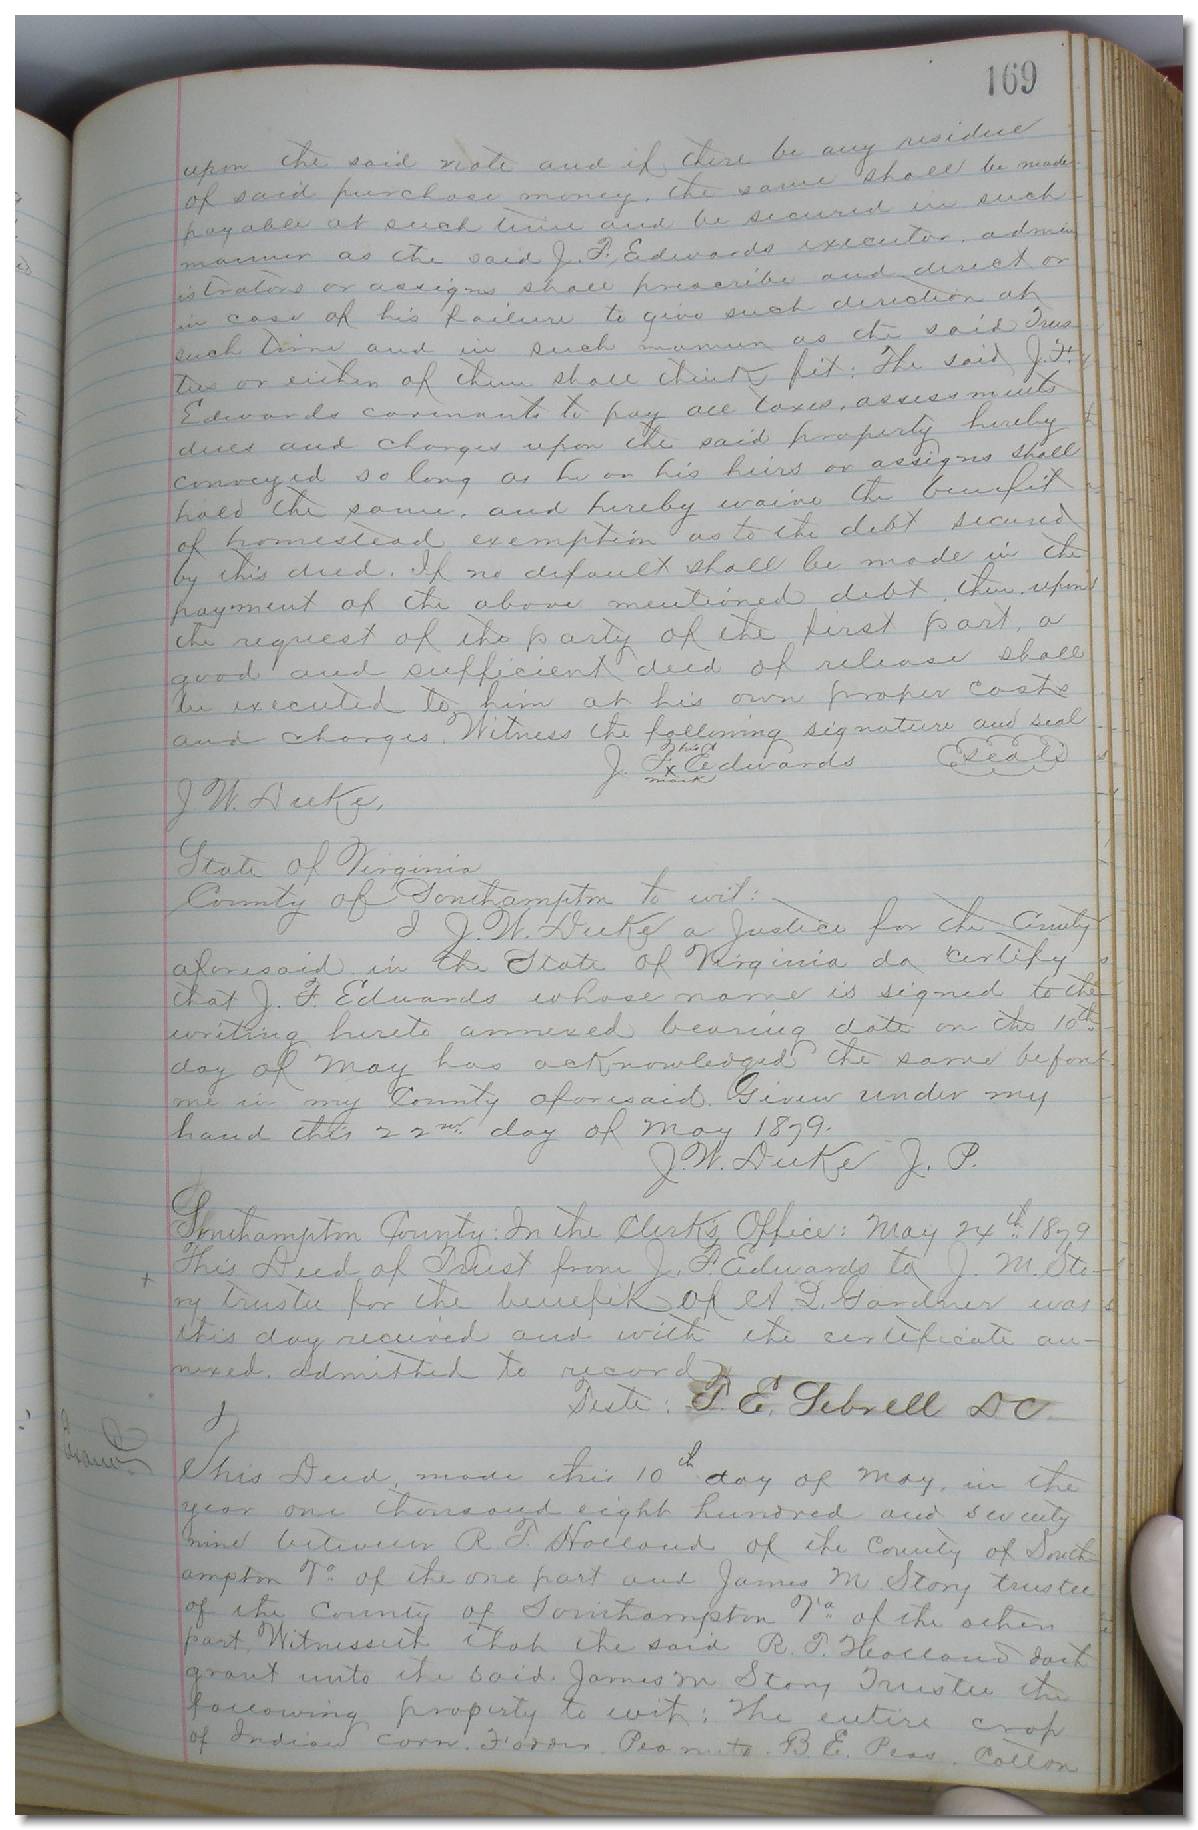 169
upon the said note and if there be any residue
of said purchase money, the same shall be made
payable at such time and be secured in such
manner as the said J. F. Edwards executor, admin
istrators or assigns shall prescribe and direct or
in case of his failure to give such direction at
such time and in such mannen as the said Trus
tees or either of them shall think fit: The said J. F.
Edwards covenants to pay all taxes, assessments
dues and charges upon the said property hereby
conveyed so long as he or his heirs or assigns shall
hold the same. and hereby waive the benefit
of homestead exemption as to the debt secured
by this deed. If no default shall be made in the
payment of the above mentioned debt, then upon
the request of the party of the first part, a
good and sufficient deed of release shall
be executed to him at his own proper costs
and charges. Witness the following signature and seal
his
J. F. x Edwards seal
mark
J W. Duke,
State of Virginia
County of Southampton to wit:
I J. W. Duke a Justice for the County
aforesaid in the State of Virginia do certify
that J. F. Edwards whose name is signed to the
writing hereto annexed bearing date on the 10th
day of May has acknowledged the same before
me in my County aforesaid. Given under my
hand this 22nd day of May 1879.
J. W. Duke J. P.
Southampton County: In the Clerks Office: May 24th 1879
This Deed of Trust from J. F. Edwards to J. M. Sto-
ry trustee for the benefit of A. L. Gardner was
this day received and with the certificate an-
nexed. admitted to record
Teste: T. E. Sebrell DC.
Exam.
This Deed, made this 10th day of May, in the
year one thousand eight hundred and seventy
nine between R. T. Holland of the County of South
ampton Va of the one part and James M Story trustee
of the County of Southampton Va of the other
part, Witnesseth that the said R. T. Holland doth
grant unto the said James M Story Trustee the
following property to wit: The entire crop
of Indian corn. Fodder. Peanuts. B. E. Peas. Cotton